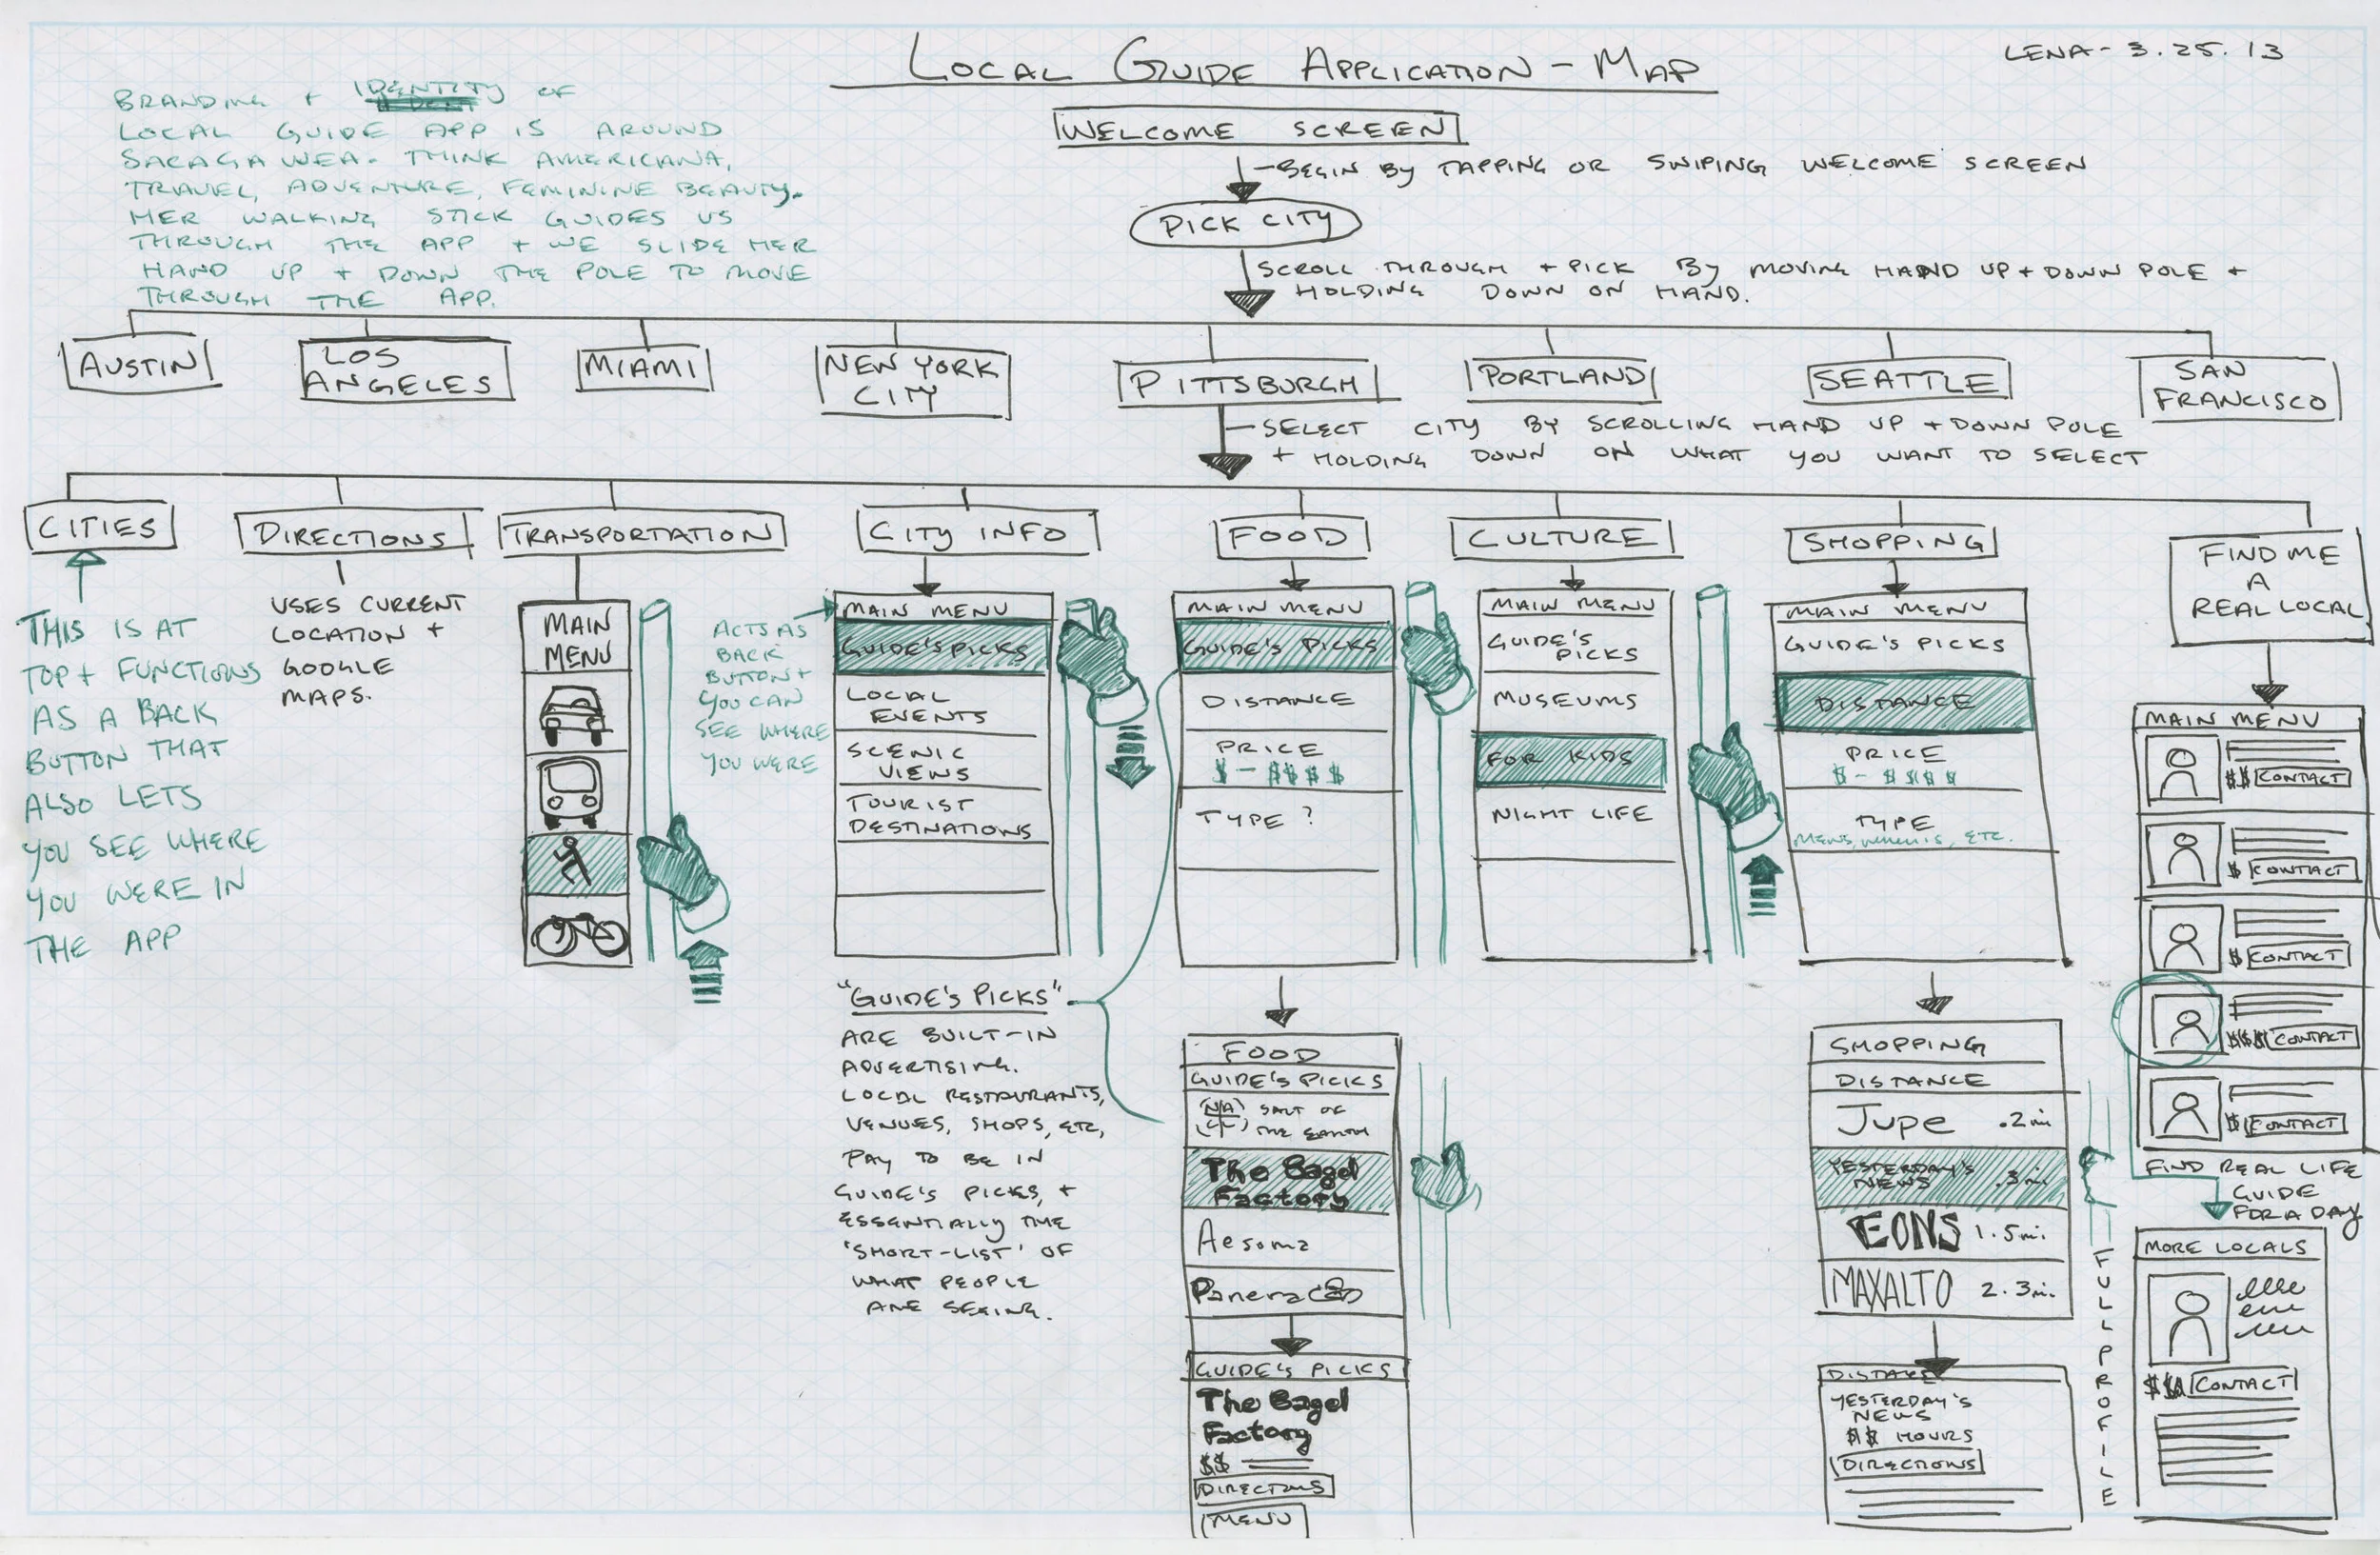 LOCAL GUIDE APPLICATION - MAP
LENA - 3.25.13
BRANDING + IDENTITY OF
LOCAL GUIDE APP IS AROUND
SACAGAWEA. THINK AMERICANA,
TRAVEL, ADVENTURE, FEMININE BEAUTY.
HER WALKING STICK GUIDES US
THROUGH THE APP + WE SLIDE HER
HAND UP + DOWN THE POLE TO MOVE
THROUGH THE APP.
WELCOME SCREEN
BEGIN BY TAPPING OR SWIPING WELCOME SCREEN
PICK CITY
SCROLL THROUGH + PICK BY MOVING HAND UP + DOWN POLE +
HOLDING DOWN ON HAND.
AUSTIN
LOS
ANGELES
MIAMI
NEW YORK
CITY
PITTSBURGH
PORTLAND
SEATTLE
SAN
FRANCISCO
SELECT CITY BY SCROLLING HAND UP + DOWN POLE
+ HOLDING DOWN ON WHAT YOU WANT TO SELECT
CITIES
THIS IS AT
TOP + FUNCTIONS
AS A BACK
BUTTON THAT
ALSO LETS
YOU SEE WHERE
YOU WERE IN
THE APP
DIRECTIONS
USES CURRENT
LOCATION +
GOOGLE
MAPS.
TRANSPORTATION
MAIN
MENU
CITY INFO
ACTS AS
BACK
BUTTON +
YOU CAN
SEE WHERE
YOU WERE
MAIN MENU
GUIDE'S PICKS
LOCAL
EVENTS
SCENIC
VIEWS
TOURIST
DESTINATIONS
"GUIDE'S PICKS"
ARE BUILT-IN
ADVERTISING.
LOCAL RESTAURANTS,
VENUES, SHOPS, ETC,
PAY TO BE IN
GUIDE'S PICKS, +
ESSENTIALLY THE
'SHORT-LIST' OF
WHAT PEOPLE
ARE SEEING.
FOOD
MAIN MENU
GUIDE'S PICKS
DISTANCE
PRICE
$ - $$$$
TYPE ?
FOOD
GUIDE'S PICKS
SALT OF
THE EARTH
The Bagel
Factory
Aesoma
Panera
GUIDE'S PICKS
The Bagel
Factory
$$
DIRECTIONS
MENU
CULTURE
MAIN MENU
GUIDE'S
PICKS
MUSEUMS
FOR KIDS
NIGHT LIFE
SHOPPING
MAIN MENU
GUIDE'S PICKS
DISTANCE
PRICE
$ - $$$$
TYPE
MENS, WOMENS, ETC.
SHOPPING
DISTANCE
Jupe .2mi
YESTERDAY'S
NEWS .3mi
EONS 1.5mi.
MAXALTO 2.3mi.
DISTANCE
YESTERDAY'S
NEWS
$$ HOURS
DIRECTIONS
FIND ME
A
REAL LOCAL
MAIN MENU
$$ CONTACT
$ CONTACT
$ CONTACT
$$$ CONTACT
$ CONTACT
FIND REAL LIFE
GUIDE
FOR A DAY
FULL PROFILE
MORE LOCALS
CONTACT